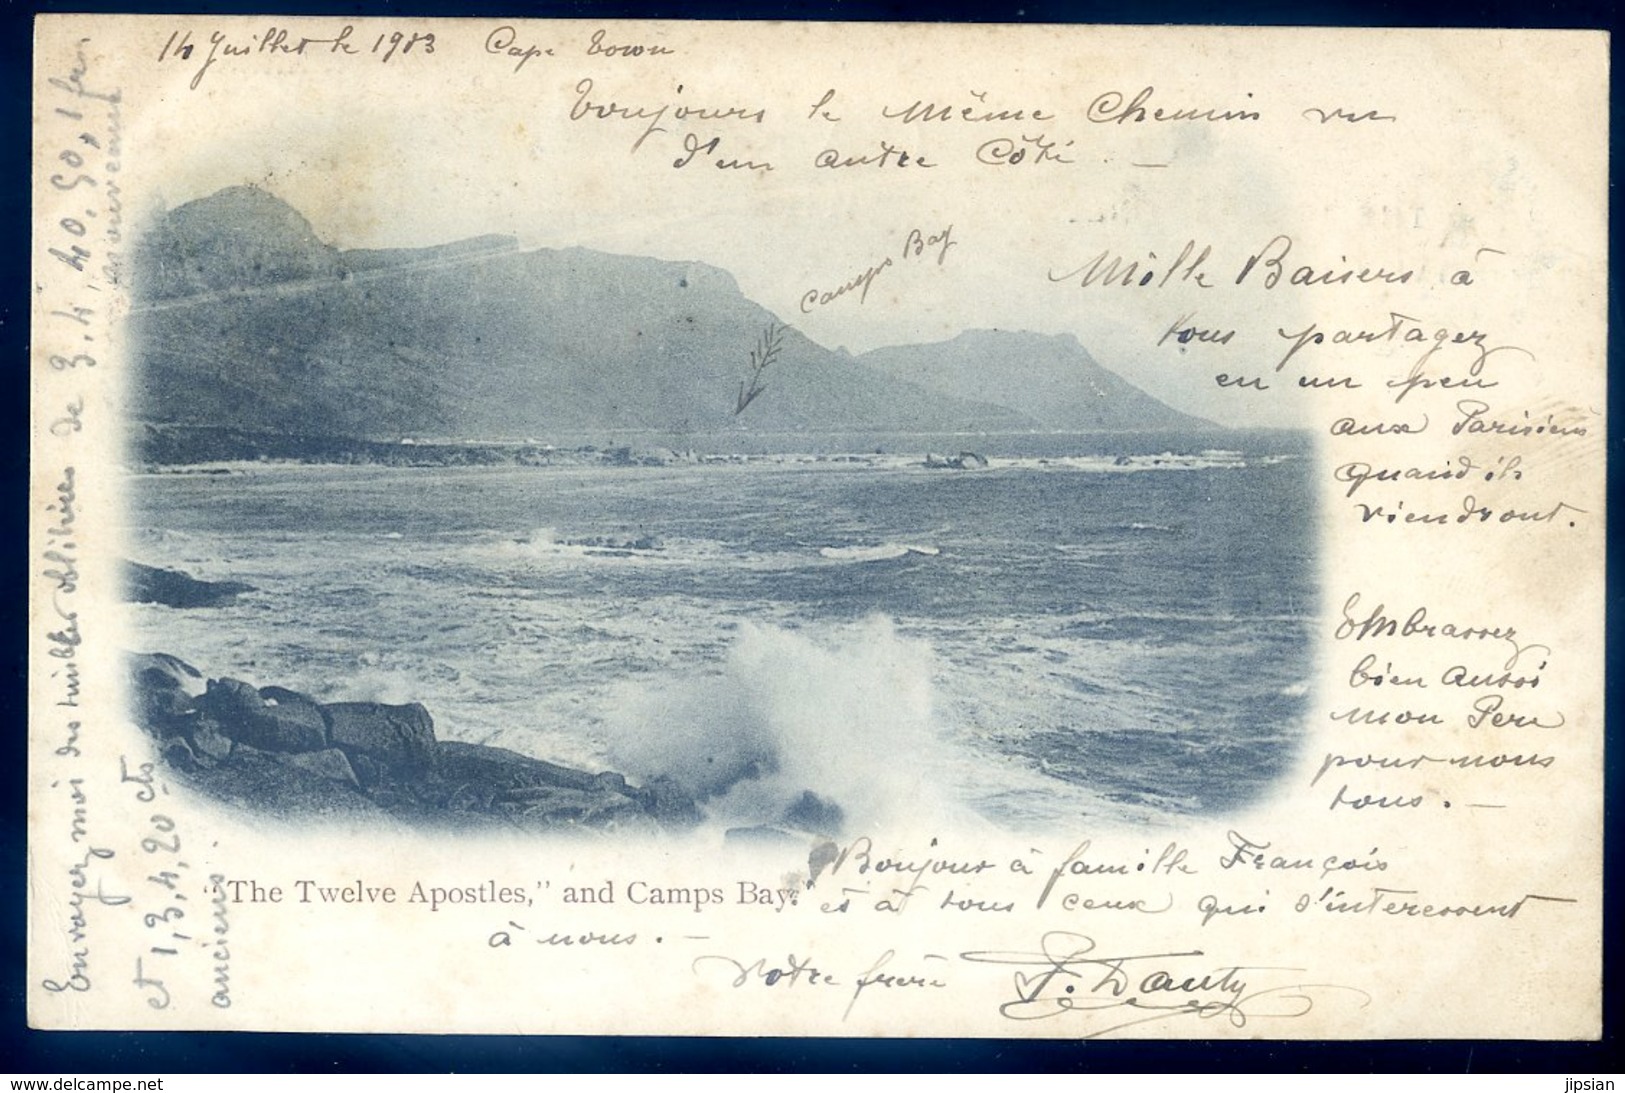 14 Juillet le 1903 Cape Town
Toujours le Même Chemin vu
d'un autre Côté. —
Camps Bay
Mille Baisers à
tous partagez
en un peu
aux Parisiens
quand ils
viendront.
Embrassez
bien aussi
mon Pere
pour nous
tous. —
Bonjour à famille François
et à tous ceux qui s'interessent
à nous. —
Votre frère F. Dauty
"The Twelve Apostles," and Camps Bay.
Envoyez moi des timbres oblitérés de 3, 4, 40, 50, 1 fr.
et 1, 3, 4, 20 cts
anciens.
delcampe.net
jipsian